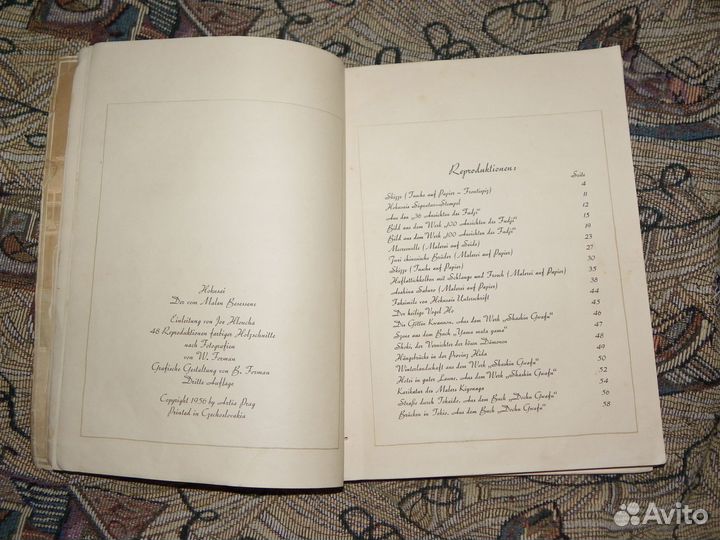 Hokusai
Der vom Malen Besessene
Einleitung von Joe Hloucha
48 Reproduktionen farbiger Holzschnitte
nach Fotografien
von W. Forman
Grafische Gestaltung von B. Forman
Dritte Auflage
Copyright 1956 by Artia Prag
Printed in Czechoslovakia
Reproduktionen:
Seite
Skizze (Tusche auf Papier – Frontispiz) 4
Hokusais Signatur–Stempel 11
Aus den "36 Ansichten des Fudji" 12
Bild aus dem Werk "100 Ansichten des Fudji" 15
Bild aus dem Werk "100 Ansichten des Fudji" 19
Meereswelle (Malerei auf Seide) 23
Zwei chinesische Brüder (Malerei auf Papier) 27
Skizze (Tusche auf Papier) 30
Huflattichkolben mit Schlange und Frosch (Malerei auf Papier) 35
Asahina Saburo (Malerei auf Papier) 38
Faksimile von Hokusais Unterschrift 41
Der heilige Vogel Ho 44
Die Göttin Kwannon, Aus dem Werk „Shashin Gwafu" 45
Szene aus dem Buch „Yama mata yama" 46
Shoki, der Vernichter der bösen Dämonen 47
Hängebrücke in der Provinz Hida 49
Winterlandschaft aus dem Werk „Shashin Gwafu" 50
Hotei in guter Laune, Aus dem Werk „Shashin Gwafu" 52
Karikatur des Malers Kiyonaga 54
Straße durch Tokaido, Aus dem Buch „Dochu Gwafu" 56
Brücken in Tokio, Aus dem Buch „Dochu Gwafu" 58
Avito